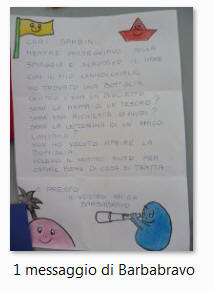 CARI BAMBINI,
MENTRE PASSEGGIAVO SULLA
SPIAGGIA E SCRUTAVO IL MARE
CON IL MIO CANNOCCHIALE
HO TROVATO UNA BOTTIGLIA.
DENTRO C'ERA UN BIGLIETTO
SARÀ LA MAPPA DI UN TESORO?
SARÀ UNA RICHIESTA D'AIUTO?
SARÀ LA LETTERINA DI UN AMICO
LONTANO?
NON HO VOLUTO APRIRE LA
BOTTIGLIA.
VOGLIO IL VOSTRO AIUTO PER
CAPIRE BENE DI COSA SI TRATTA.
A PRESTO
IL VOSTRO AMICO
BARBABRAVO
1 messaggio di Barbabravo